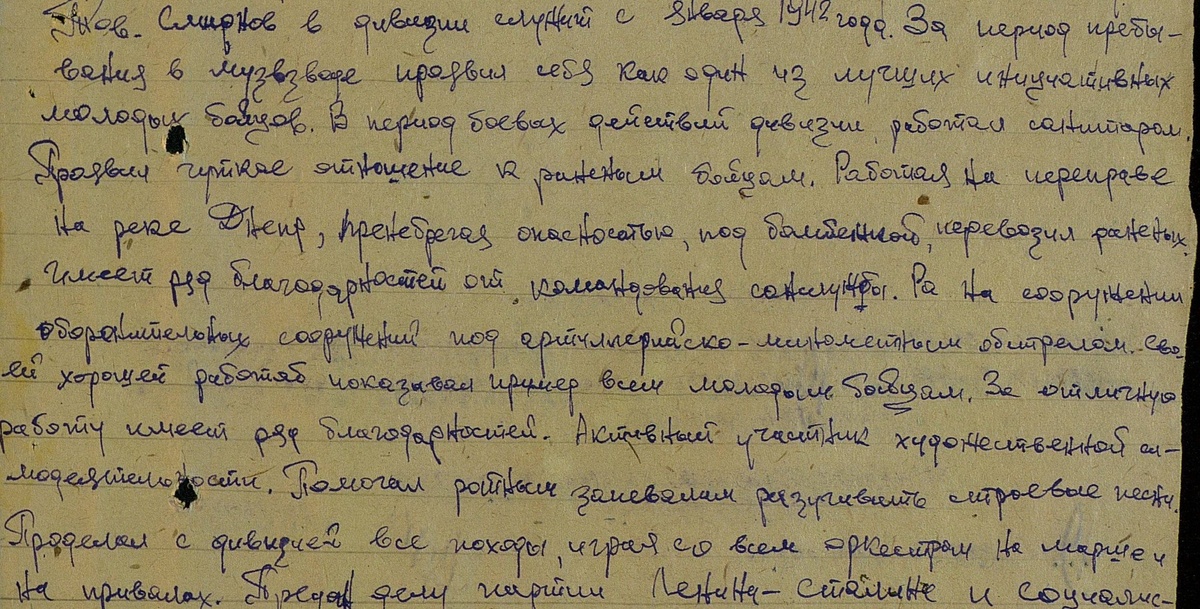 Тов. Смирнов в дивизии служит с января 1942 года. За период пребы-
вания в музвзводе проявил себя как один из лучших инициативных
молодых бойцов. В период боевых действий дивизии работал санитаром.
Проявил чуткое отношение к раненым бойцам. Работая на переправе
на реке Днепр, пренебрегая опасностью, под бомбежкой, перевозил раненых.
Имеет ряд благодарностей от командования санслужбы. Ра на сооружении
оборонительных сооружений под артиллерийско-минометным обстрелом. Сво-
ей хорошей работой показывал пример всем молодым бойцам. За отличную
работу имеет ряд благодарностей. Активный участник художественной са-
модеятельности. Помогал ротным запевалам разучивать строевые песни.
Проделал с дивизией все походы, играя со всем оркестром на марше и
на привалах. Предан делу партии Ленина-Сталина и социалис-